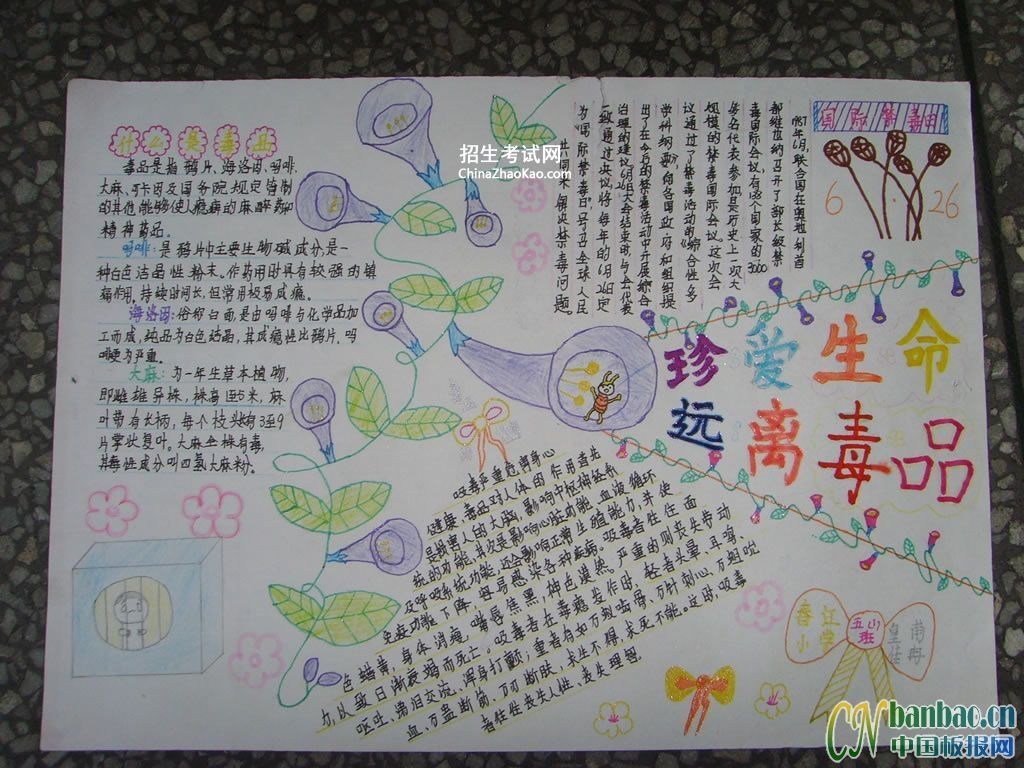 什么是毒品
毒品是指鸦片、海洛因、吗啡、
大麻、可卡因及国务院规定管制
的其他能够使人瘾癖的麻醉药和
精神药品。
吗啡：是鸦片中主要生物碱成分，是一
种白色洁晶性粉末。作药用时具有较强的镇
痛作用，持续时间长，但常用极易成瘾。
海洛因：俗称白面，是由吗啡与化学品加
工而成，纯品为白色结晶，其成瘾性比鸦片、吗
啡更为严重。
大麻：为一年生草本植物，
即雌雄异株，株高1至5米，麻
叶带有长柄，每个枝头有3至9
片掌状复叶。大麻全株有毒，
其毒性成分叫四氢大麻粉。
招生考试网
ChinaZhaoKao.com
国际禁毒日
6 . 26
1987年6月，联合国在奥地利首
都维也纳召开了部长级禁
毒国际会议，有138个国家的3000
多名代表参加，是历史上一次大
规模的禁毒国际会议。这次会
议通过了禁毒活动的《综合性多
学科纲要》，向各国政府和组织提
出了在今后的禁毒活动中开展综合
治理的建议。6月26日大会结束时，与会代表
一致通过决议，将每年的6月26日定
为“国际禁毒日”，号召全球人民
共同来解决禁毒问题。
珍爱生命
远离毒品
吸毒严重危害身心
健康，毒品对人体的作用首先
是损害人的大脑，影响中枢神经系
统的功能，其次是影响心脏功能、血液循环
及呼吸系统功能，还会影响正常生殖能力，并使
免疫功能下降，极易感染各种疾病。吸毒者往往面
色蜡黄，身体消瘦，嘴唇焦黑，神色漠然，严重的则丧失劳动
力，以致日渐衰竭而死亡。吸毒者在毒瘾发作时，轻者头晕、耳聋、
呕吐、涕泪交流、浑身打颤；重者有如万刻啮骨、万针刺心、万蛆吮
血、万蛊断筋、万刃断肤，求生不得，求死不能。这时，吸毒
者往往丧失人性，丧失理智。
五山
班
banbao.cn
中国板报网